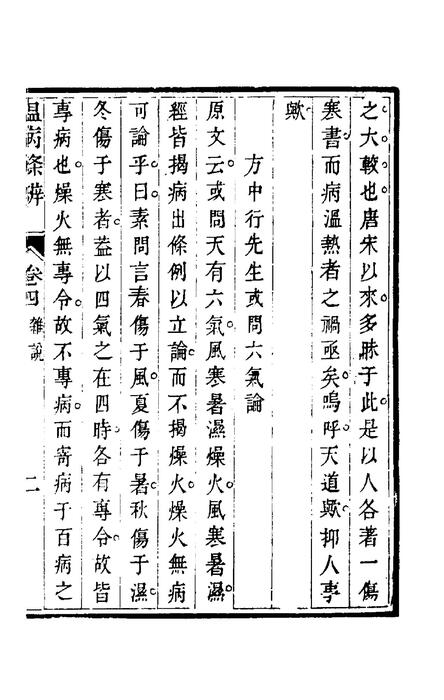 之大較也唐宋以來多眛于此是以人各著一傷
寒書而病溫熱者之禍亟矣嗚呼天道歟抑人事
歟
方中行先生或問六氣論
原文云或問天有六氣風寒暑濕燥火風寒暑濕
經皆揭病出條例以立論而不揭燥火燥火無病
可論乎曰素問言春傷于風夏傷于暑秋傷于濕
冬傷于寒者葢以四氣之在四時各有專令故皆
專病也燥火無專令故不專病而寄病于百病之
溫病條辨
卷四 雜說
二